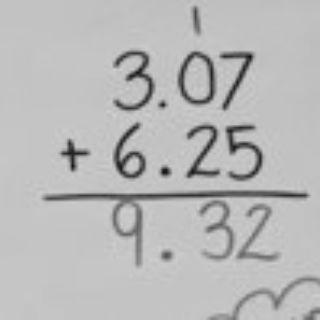 1
3.07
+ 6.25
9.32